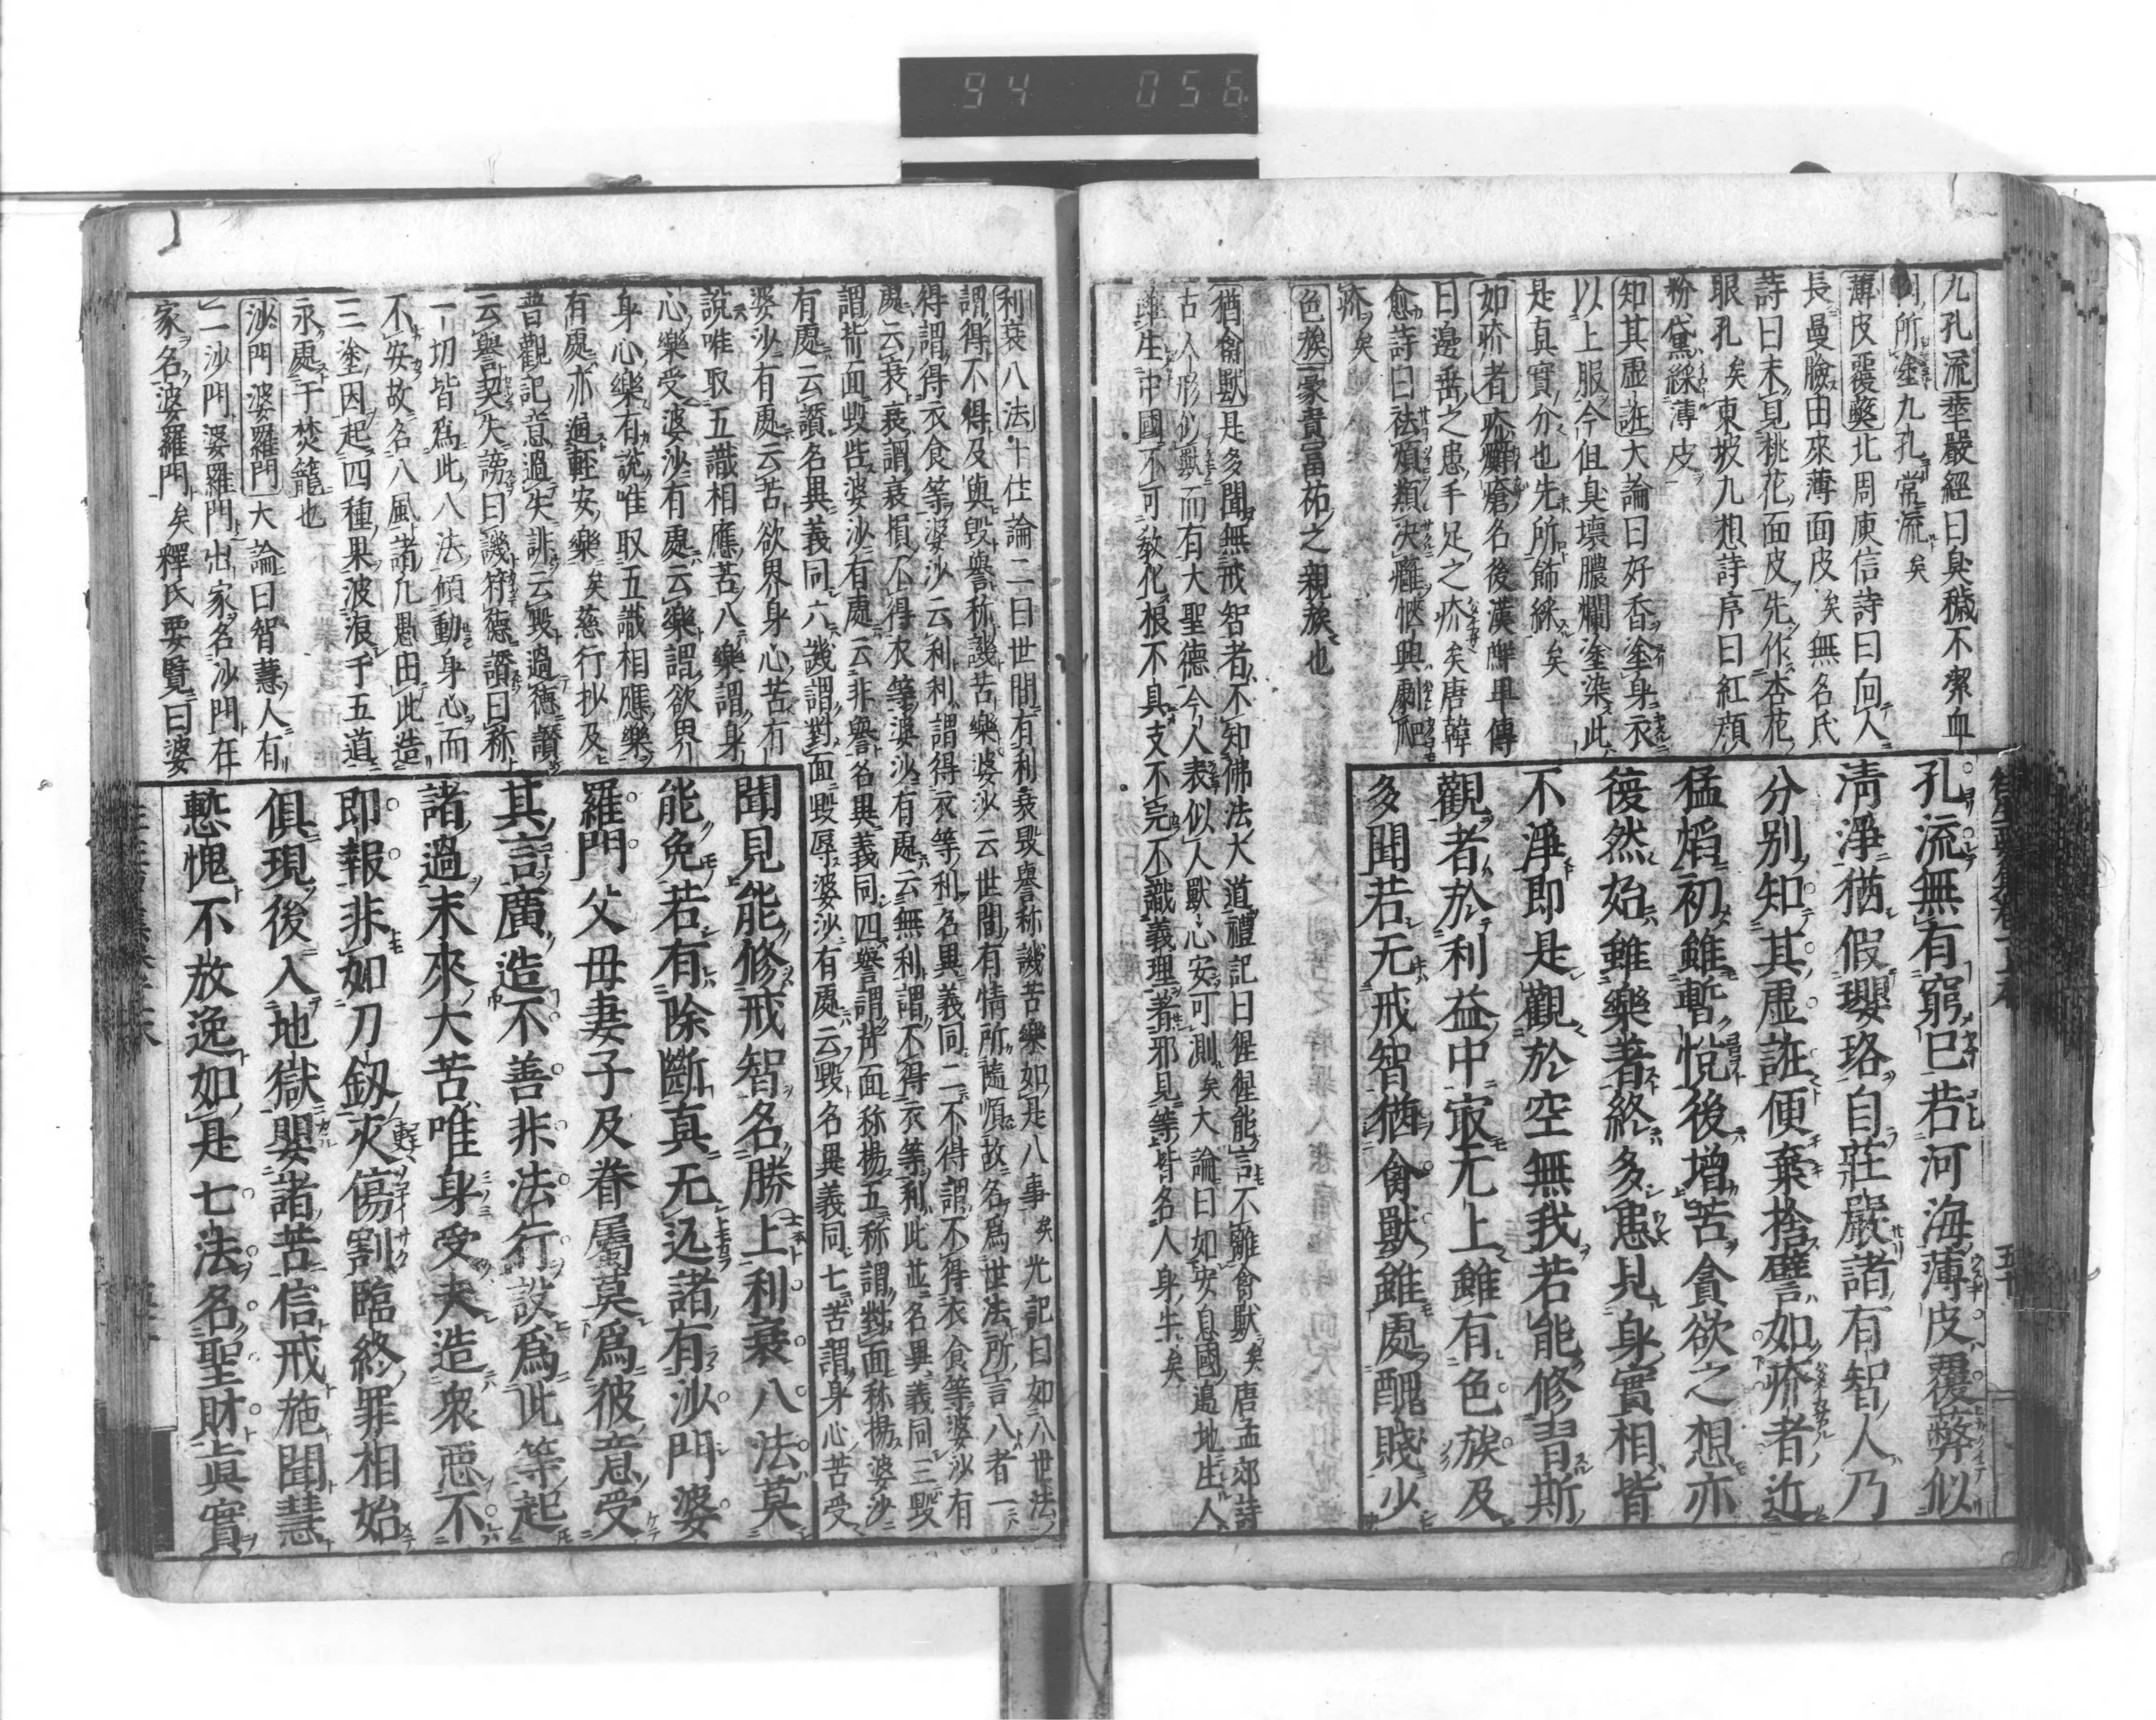 94 056
九孔流華嚴經曰臭穢不潔血
所塗九孔常流矣
薄皮覆弊北周庾信詩曰向人
長曼臉由來薄面皮矣無名氏
詩曰未見桃花面皮先作杏花
眼孔矣東坡九想詩序曰紅顔
粉黛綵薄皮
知其虛誑大論曰好香塗身衣
以上服今但臭壞膿爛塗染此
是真實分也先所飾綵矣
如疥者疥癬瘡名後漢鮮卑傳
曰邊垂之患手足之疥矣唐韓
愈詩曰祛煩類決癰愜興劇爬
疥矣
色族豪貴富祐之親族也
孔流無有窮已若河海薄皮覆弊似
清淨猶假瓔珞自莊嚴諸有智人乃
分別知其虛誑便棄捨譬如疥者近
猛焰初雖暫悅後增苦貪欲之想亦
復然始雖樂著終多患見身實相皆
不淨即是觀於空無我若能修習斯
觀者於利益中㝡无上雖有色族及
多聞若无戒智猶禽獸雖處醜賤少
猶禽獸是多聞無戒智者不知佛法大道禮記曰猩猩能言不離禽獸矣唐孟郊詩
古人形似獸而有大聖德今人表似人獸心安可測矣大論曰如安息國邊地生人
雖生中國不可敎化根不具支不完不識義理著邪見等皆名人身牛矣
利衰八法十住論二曰世間有利衰毀譽称譏苦樂如是八事矣光記曰如八世法
謂得不得及與毀譽称譏苦樂婆沙云世間有情所隨順故名爲世法所言八者一
得謂得衣食等婆沙云利利謂得衣等利名異義同二不得謂不得衣食等婆沙有
處云衰衰謂衰損不得衣等婆沙有處云無利謂不得衣等利此並名異義同三毀
謂背面毀呰婆沙有處云非譽名異義同四譽謂背面称揚五称謂對面称揚婆沙
有處云讚名異義同六譏謂對面毀辱婆沙有處云毀名異義同七苦謂身心苦受
婆沙有處云苦欲界身心苦有
說唯取五識相應苦八樂謂身
心樂受婆沙有處云樂謂欲界
身心樂有說唯取五識相應樂
有處亦通輕安樂矣慈行抄及
普觀記意過失誹云毀過德讚
云譽契失謗曰譏符德讚曰称
一切皆爲此八法傾動身心而
不安故名八風諸凡愚由此造
三塗因起四種果波浪于五道
永處于焚籠也
沙門婆羅門大論曰智慧人有
二沙門婆羅門出家名沙門在
家名婆羅門矣釋氏要覽曰婆
聞見能修戒智名勝上利衰八法莫
能免若有除斷真无迊諸有沙門婆
羅門父母妻子及眷屬莫爲彼意受
其言廣造不善非法行設爲此等起
諸過未來大苦唯身受夫造衆惡不
即報非如刀釼灾傷割臨終罪相始
俱現後入地獄嬰諸苦信戒施聞慧
慙愧不放逸如是七法名聖財眞實